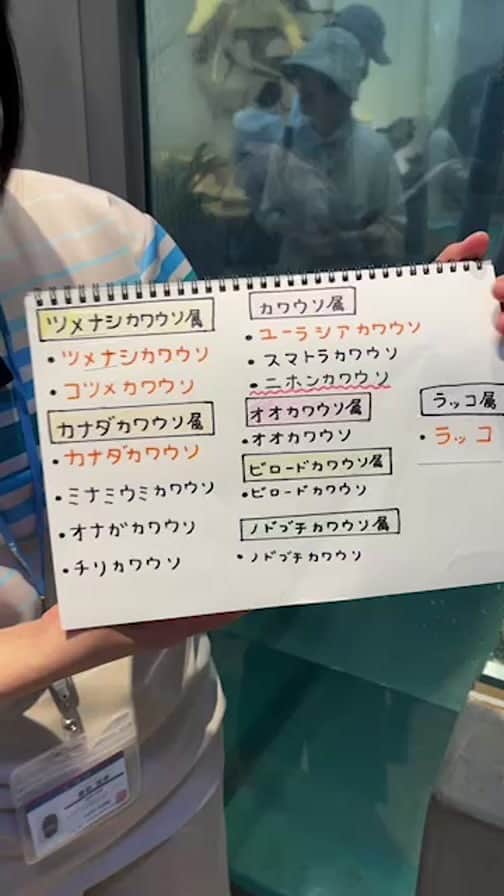 ツメナシカワウソ属
・ツメナシカワウソ
・コツメカワウソ
カナダカワウソ属
・カナダカワウソ
・ミナミウミカワウソ
・オナガカワウソ
・チリカワウソ
カワウソ属
・ユーラシアカワウソ
・スマトラカワウソ
・ニホンカワウソ
オオカワウソ属
・オオカワウソ
ビロードカワウソ属
・ビロードカワウソ
ノドブチカワウソ属
・ノドブチカワウソ
ラッコ属
・ラッコ